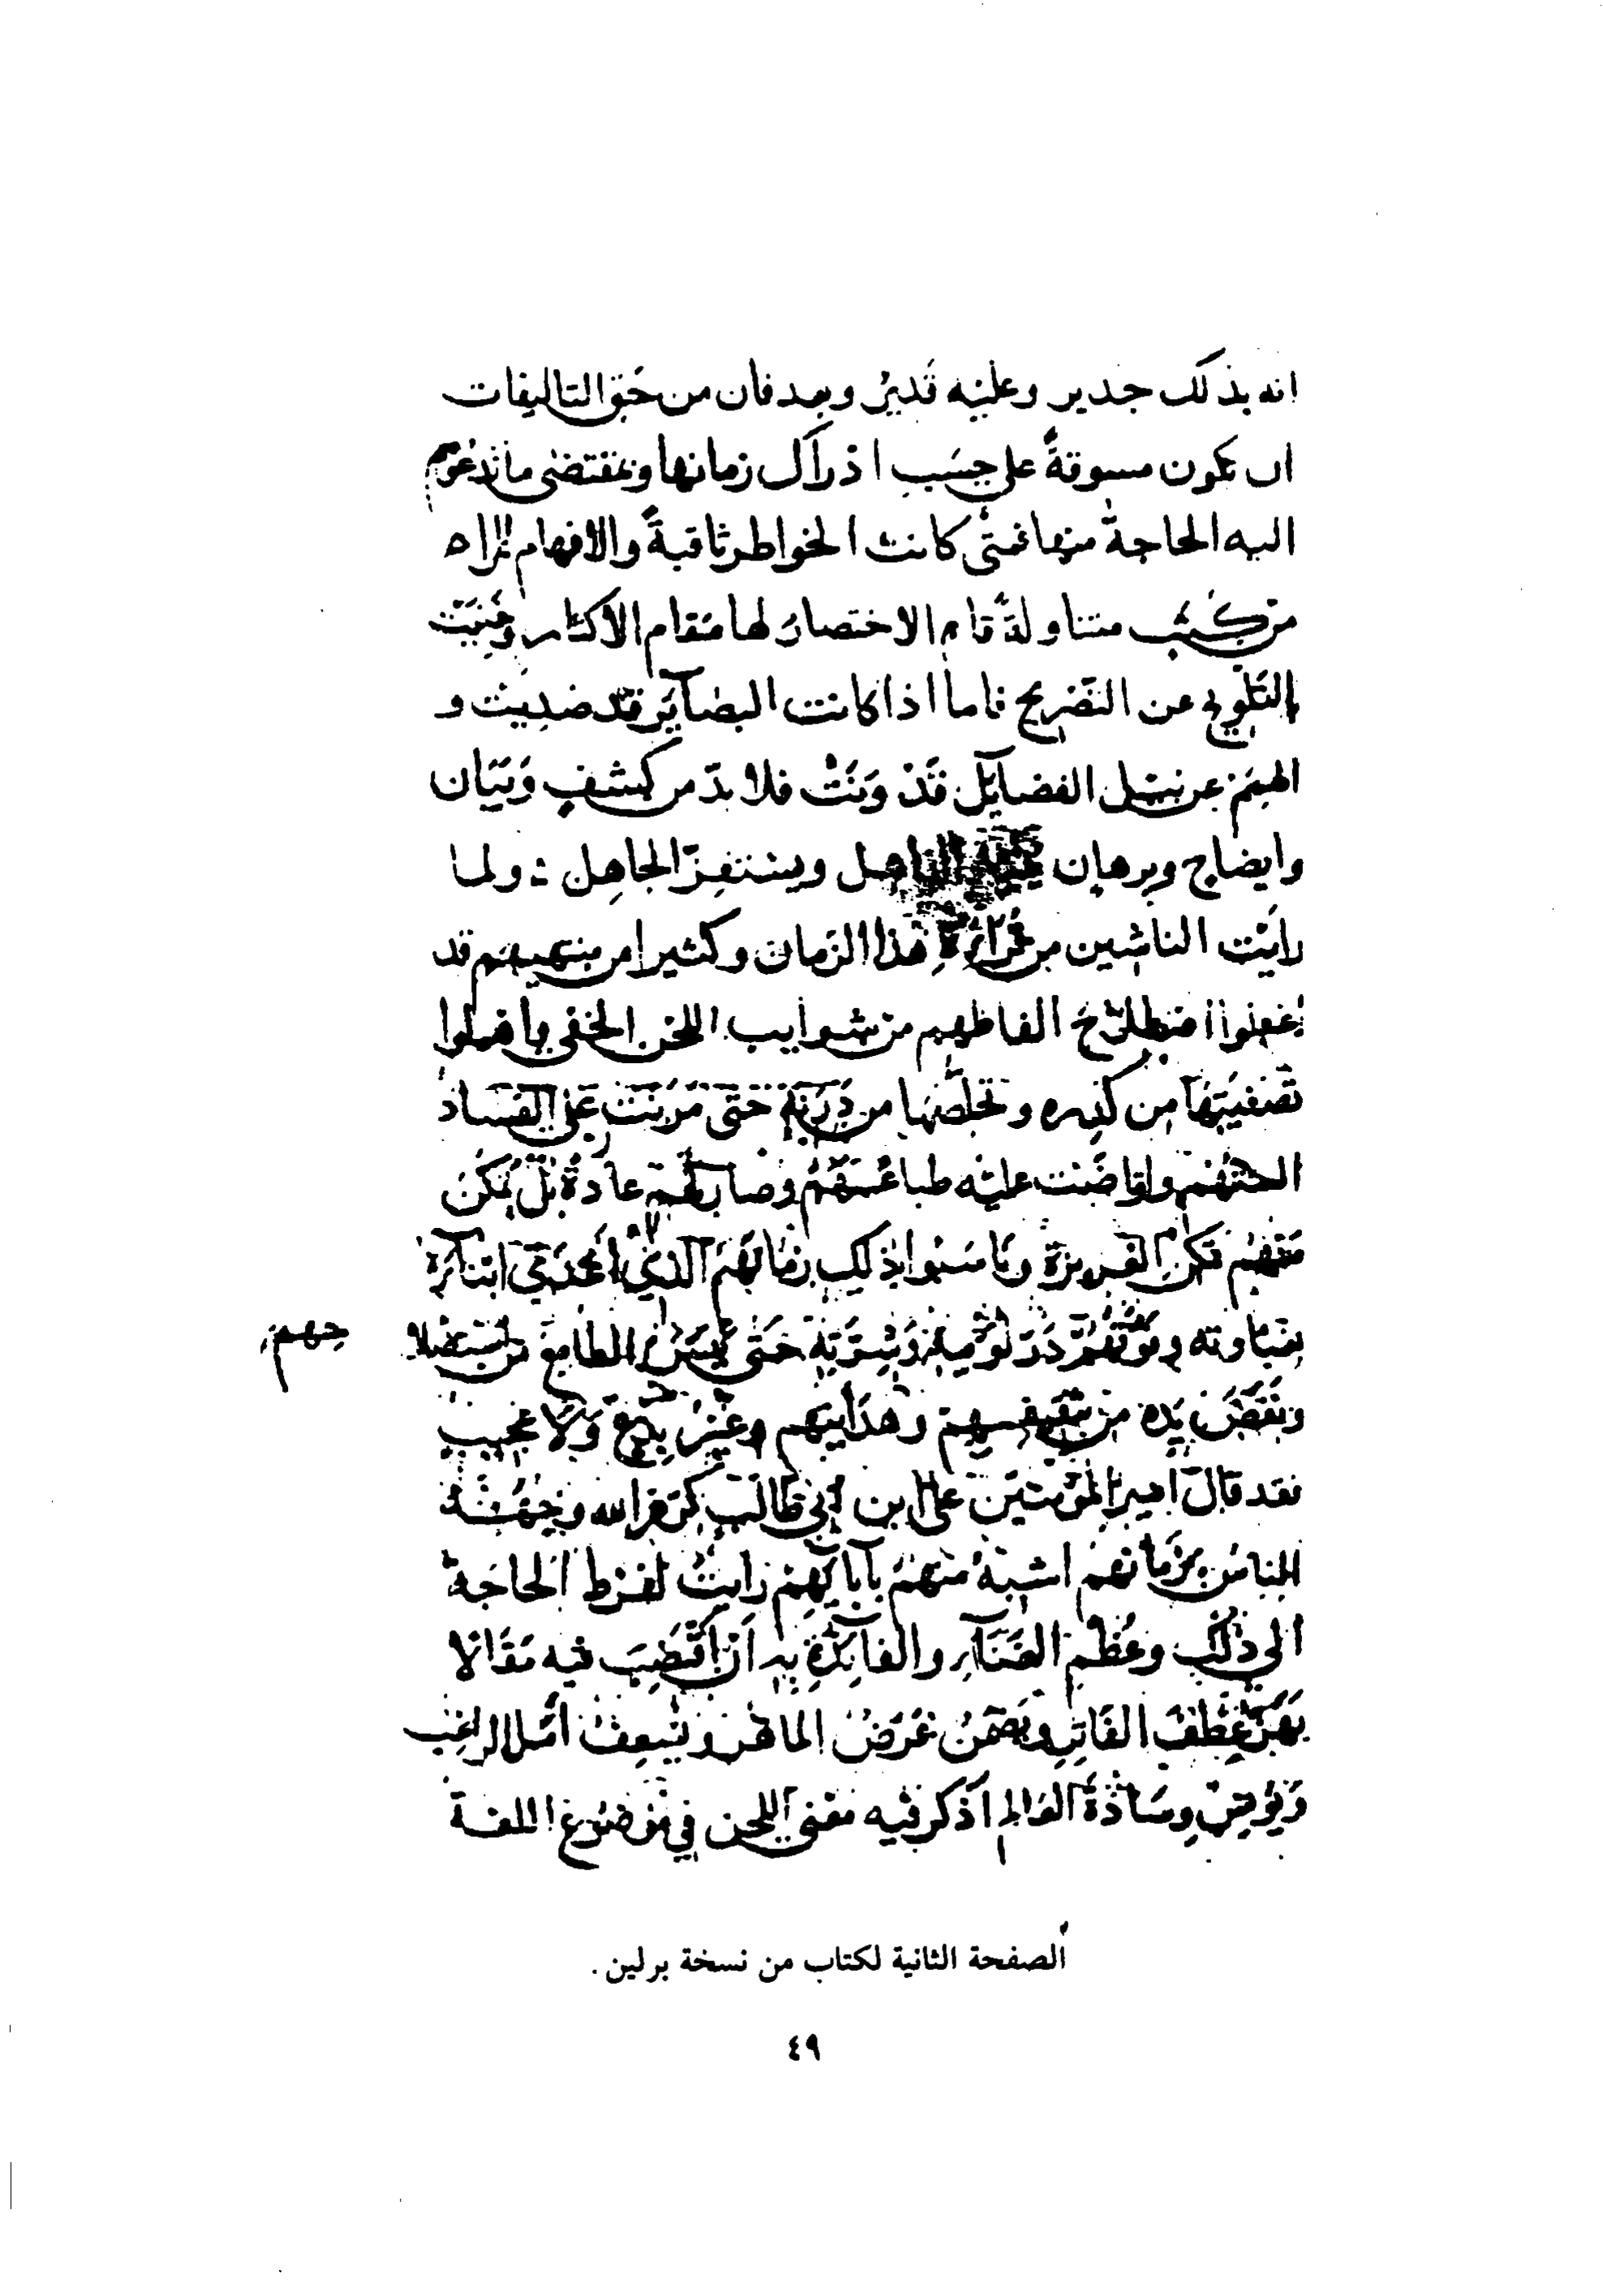 انه بذلك جدير وعليْه قَديرٌ وبعد فان من حَقِّ التاليفات
ان تكون مسوقةً على حسَبِ ادراك زمانها وبمقتضى ما تدعو هم
اليه الحاجة منها فمتى كانت الخواطر ثاقبةً والافهام للمراد
من كثب متناولةً قام الاختصارُ لها مقام الاكثار وغنيت
بالتلويح عن التصْريح فاما اذا كانت البصآير قد صديت و
الهمم عن نيل الفضايل قَدْ وَنَتْ فلا بدّ من كشفٍ وَبَيَان
وايضاح وبرهان الذاهل ويستفزّ الجاهِل ولما
رايْت الناشين من قرأة هذا الزمان وكثيرا من منتهيهم قد
اغفلوا الفاظهم من شوايب اللحن الخفي واهملوا
تصْفيَتها من كدره وتخلصها من دَرَنِه حَتّى مَرَنَتْ عَلى الفَسَاد
السنتهم وارتاضت عليْه طباعهم وصار لهم عادةً بَلْ تمكن
منهم تمكن الغريزة
بغباوته
جهم
ونَفَضَ يَده من تثقيفهم وهدايتهم وغيْرُ بِدْعٍ وَلا عجيب
فقد قال امير المؤمنين على ابن ابي طالب كرّم الله وجْهَهُ
الناس بزمانهم اشبهُ منهم بآبايهم رايتُ لفرط الحاجَة
الى ذلك وعُظم الغَنآءِ والفايدةِ به ان اقتَضِبَ فيه مَقَالا
يَهزّ عِطْفَ الفَاتِرِ ويضْمنُ غَرَضَ الماهر ويُسعِفُ امَلَ الراغب
وَيُؤنِسُ وِسَادَةَ العَالم اذكر فيْه معْنى اللحن في مَوْضوع اللغة
الصفحة الثانية لكتاب من نسخة برلين .
٤٩